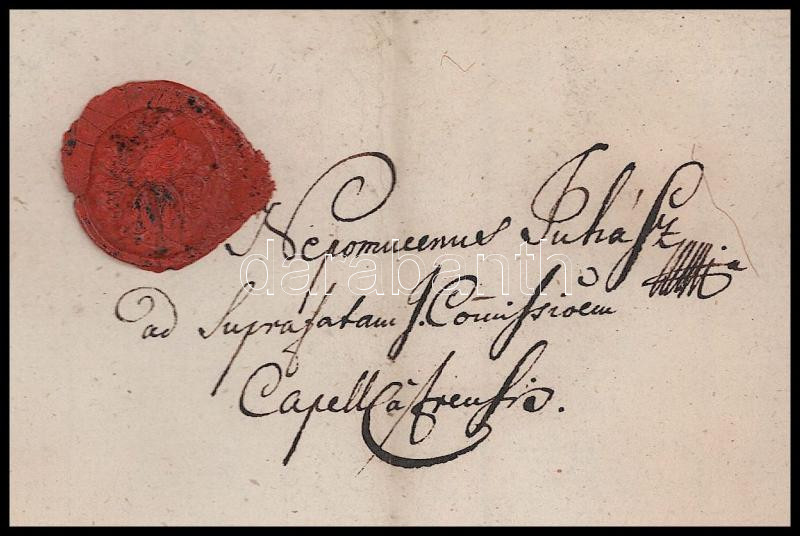 Nepomucenus Juhász
ad Suprafatam J. Com̄issioem
Capell
darabanth